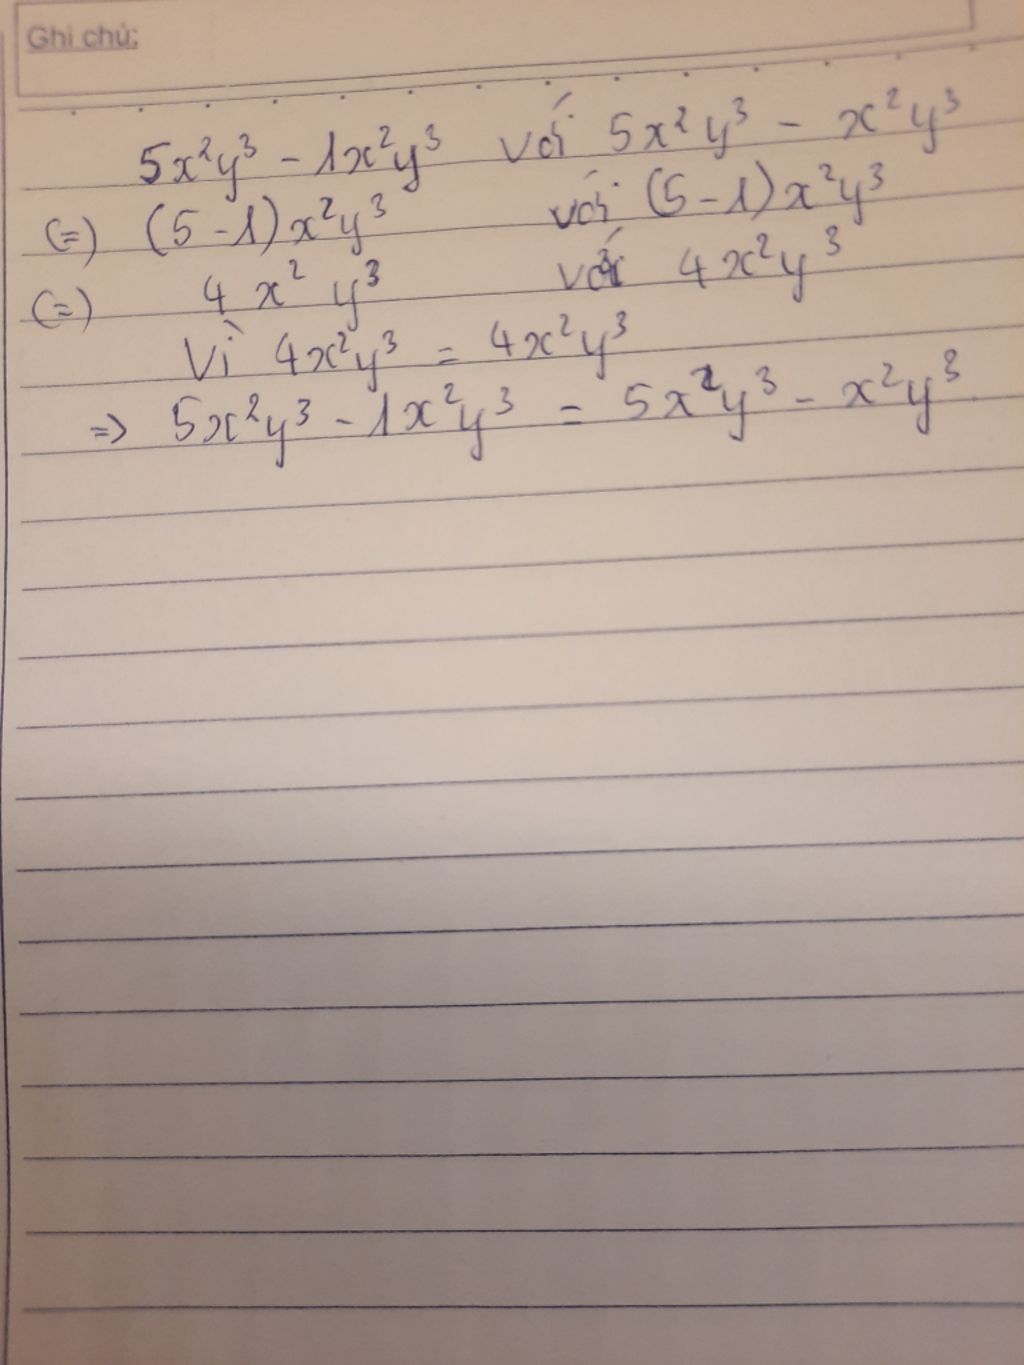 Ghi chú:
5x²y³ - 1x²y³ với 5x²y³ - x²y³
(=) (5-1)x²y³ với (5-1)x²y³
(=) 4x²y³ với 4x²y³
Vì 4x²y³ = 4x²y³
=> 5x²y³ - 1x²y³ = 5x²y³ - x²y³